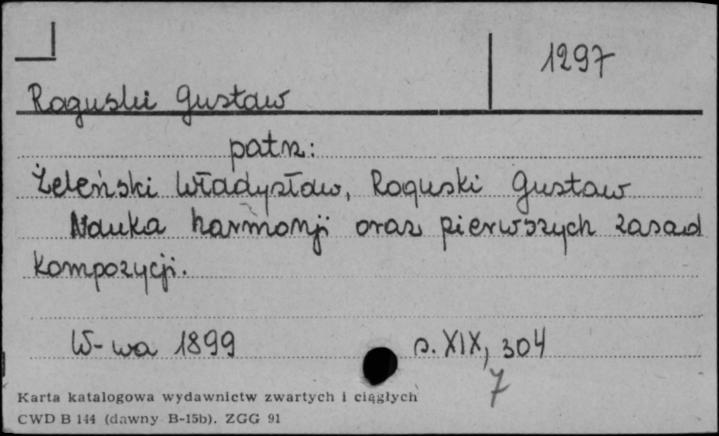 1297
Roguski Gustaw
patrz:
Żeleński Władysław, Roguski Gustaw
Nauka harmonji oraz pierwszych zasad
kompozycji.
W-wa 1899 s. XIX, 304
7
Karta katalogowa wydawnictw zwartych i ciągłych
CWD B 144 (dawny B-15b). ZGG 91